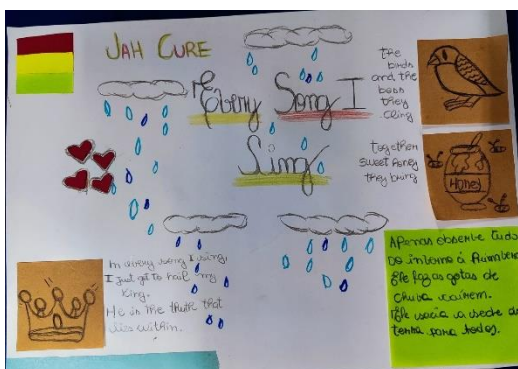 JAH CURE
Every Song I
Sing
the
birds
and the
bees
they
cling
together
sweet honey
they bring
Honey
In every song I sing,
I just got to hail my
king.
He is the truth that
lies within.
Apenas observe tudo
Ele faz as gotas de
chuva caírem.
Ele sacia a sede da
terra para todos.